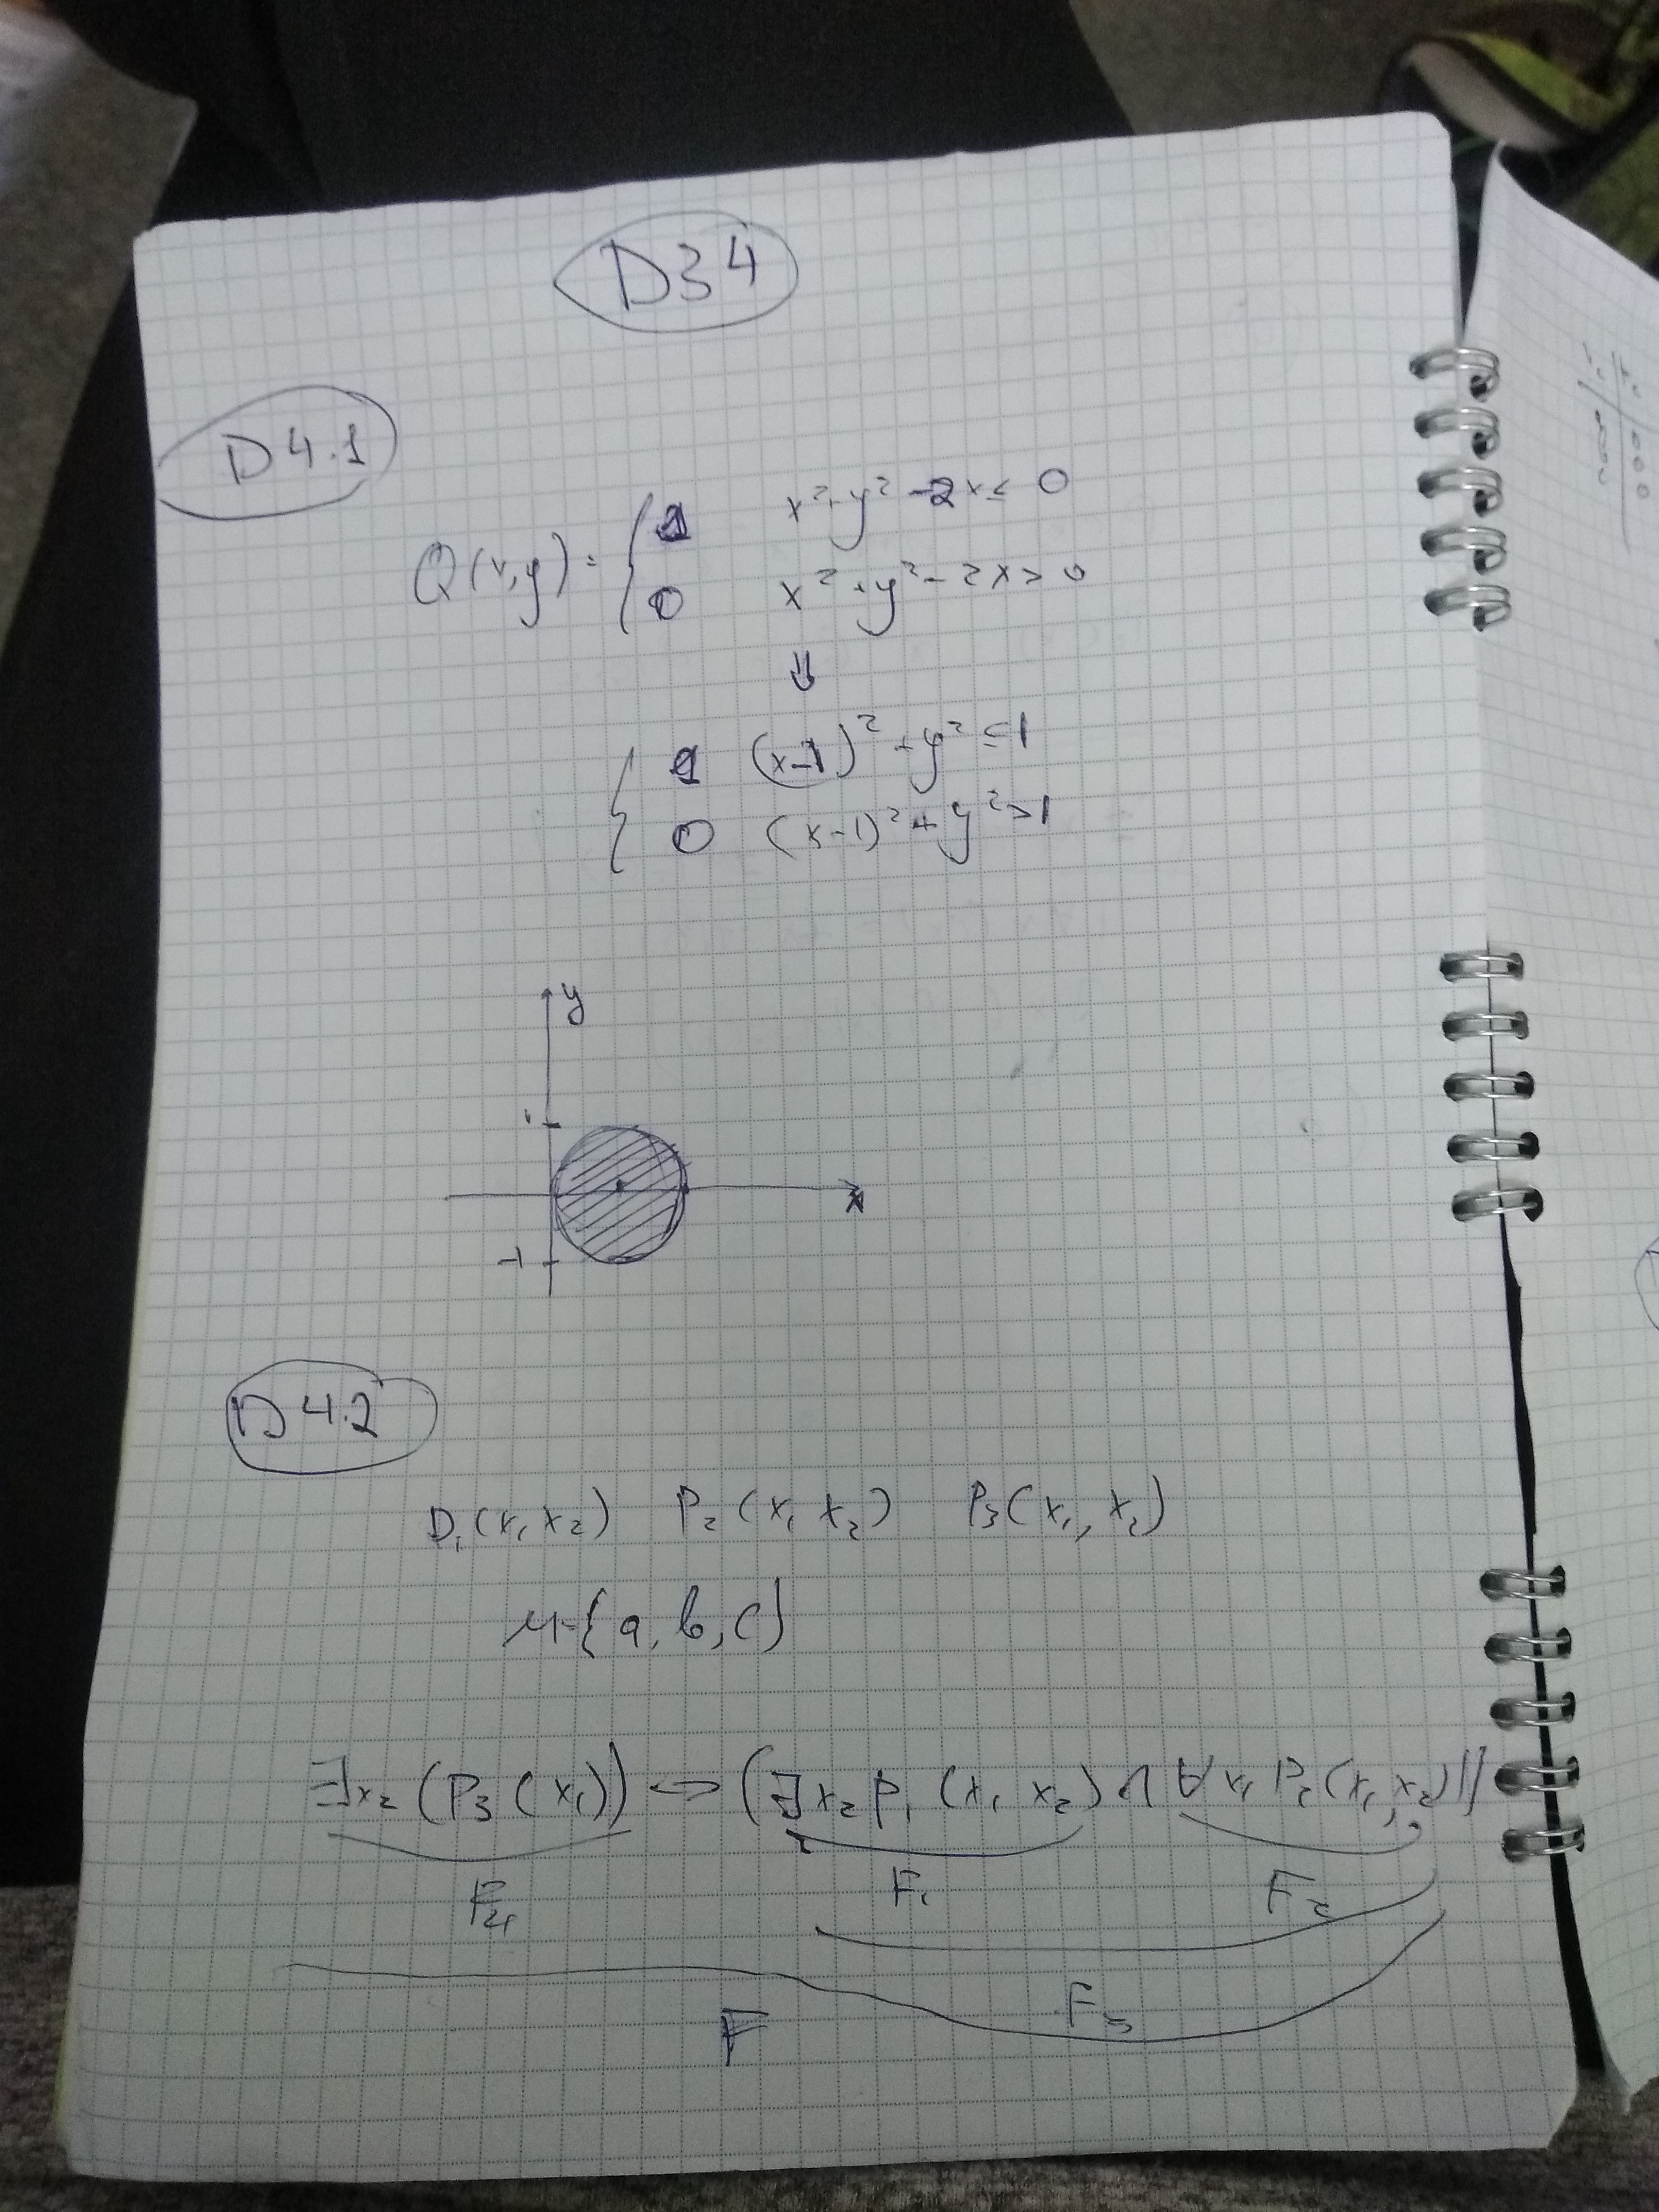 D34
D4.1
Q(x,y) = { 1 x² + y² - 2x ≤ 0
0 x² + y² - 2x > 0
⇓
{ 1 (x-1)² + y² ≤ 1
0 (x-1)² + y² > 1
y
1
x
-1
D4.2
P₁(x₁ x₂) P₂(x₁ x₂) P₃(x₁, x₂)
M = {a, b, c}
∃x₂ (P₃(x₁)) ⇔ (∃x₂ P₁(x₁ x₂) ∧ ∀x₁ P₂(x₁, x₂))
F₄ F₁ F₂
F₃
F